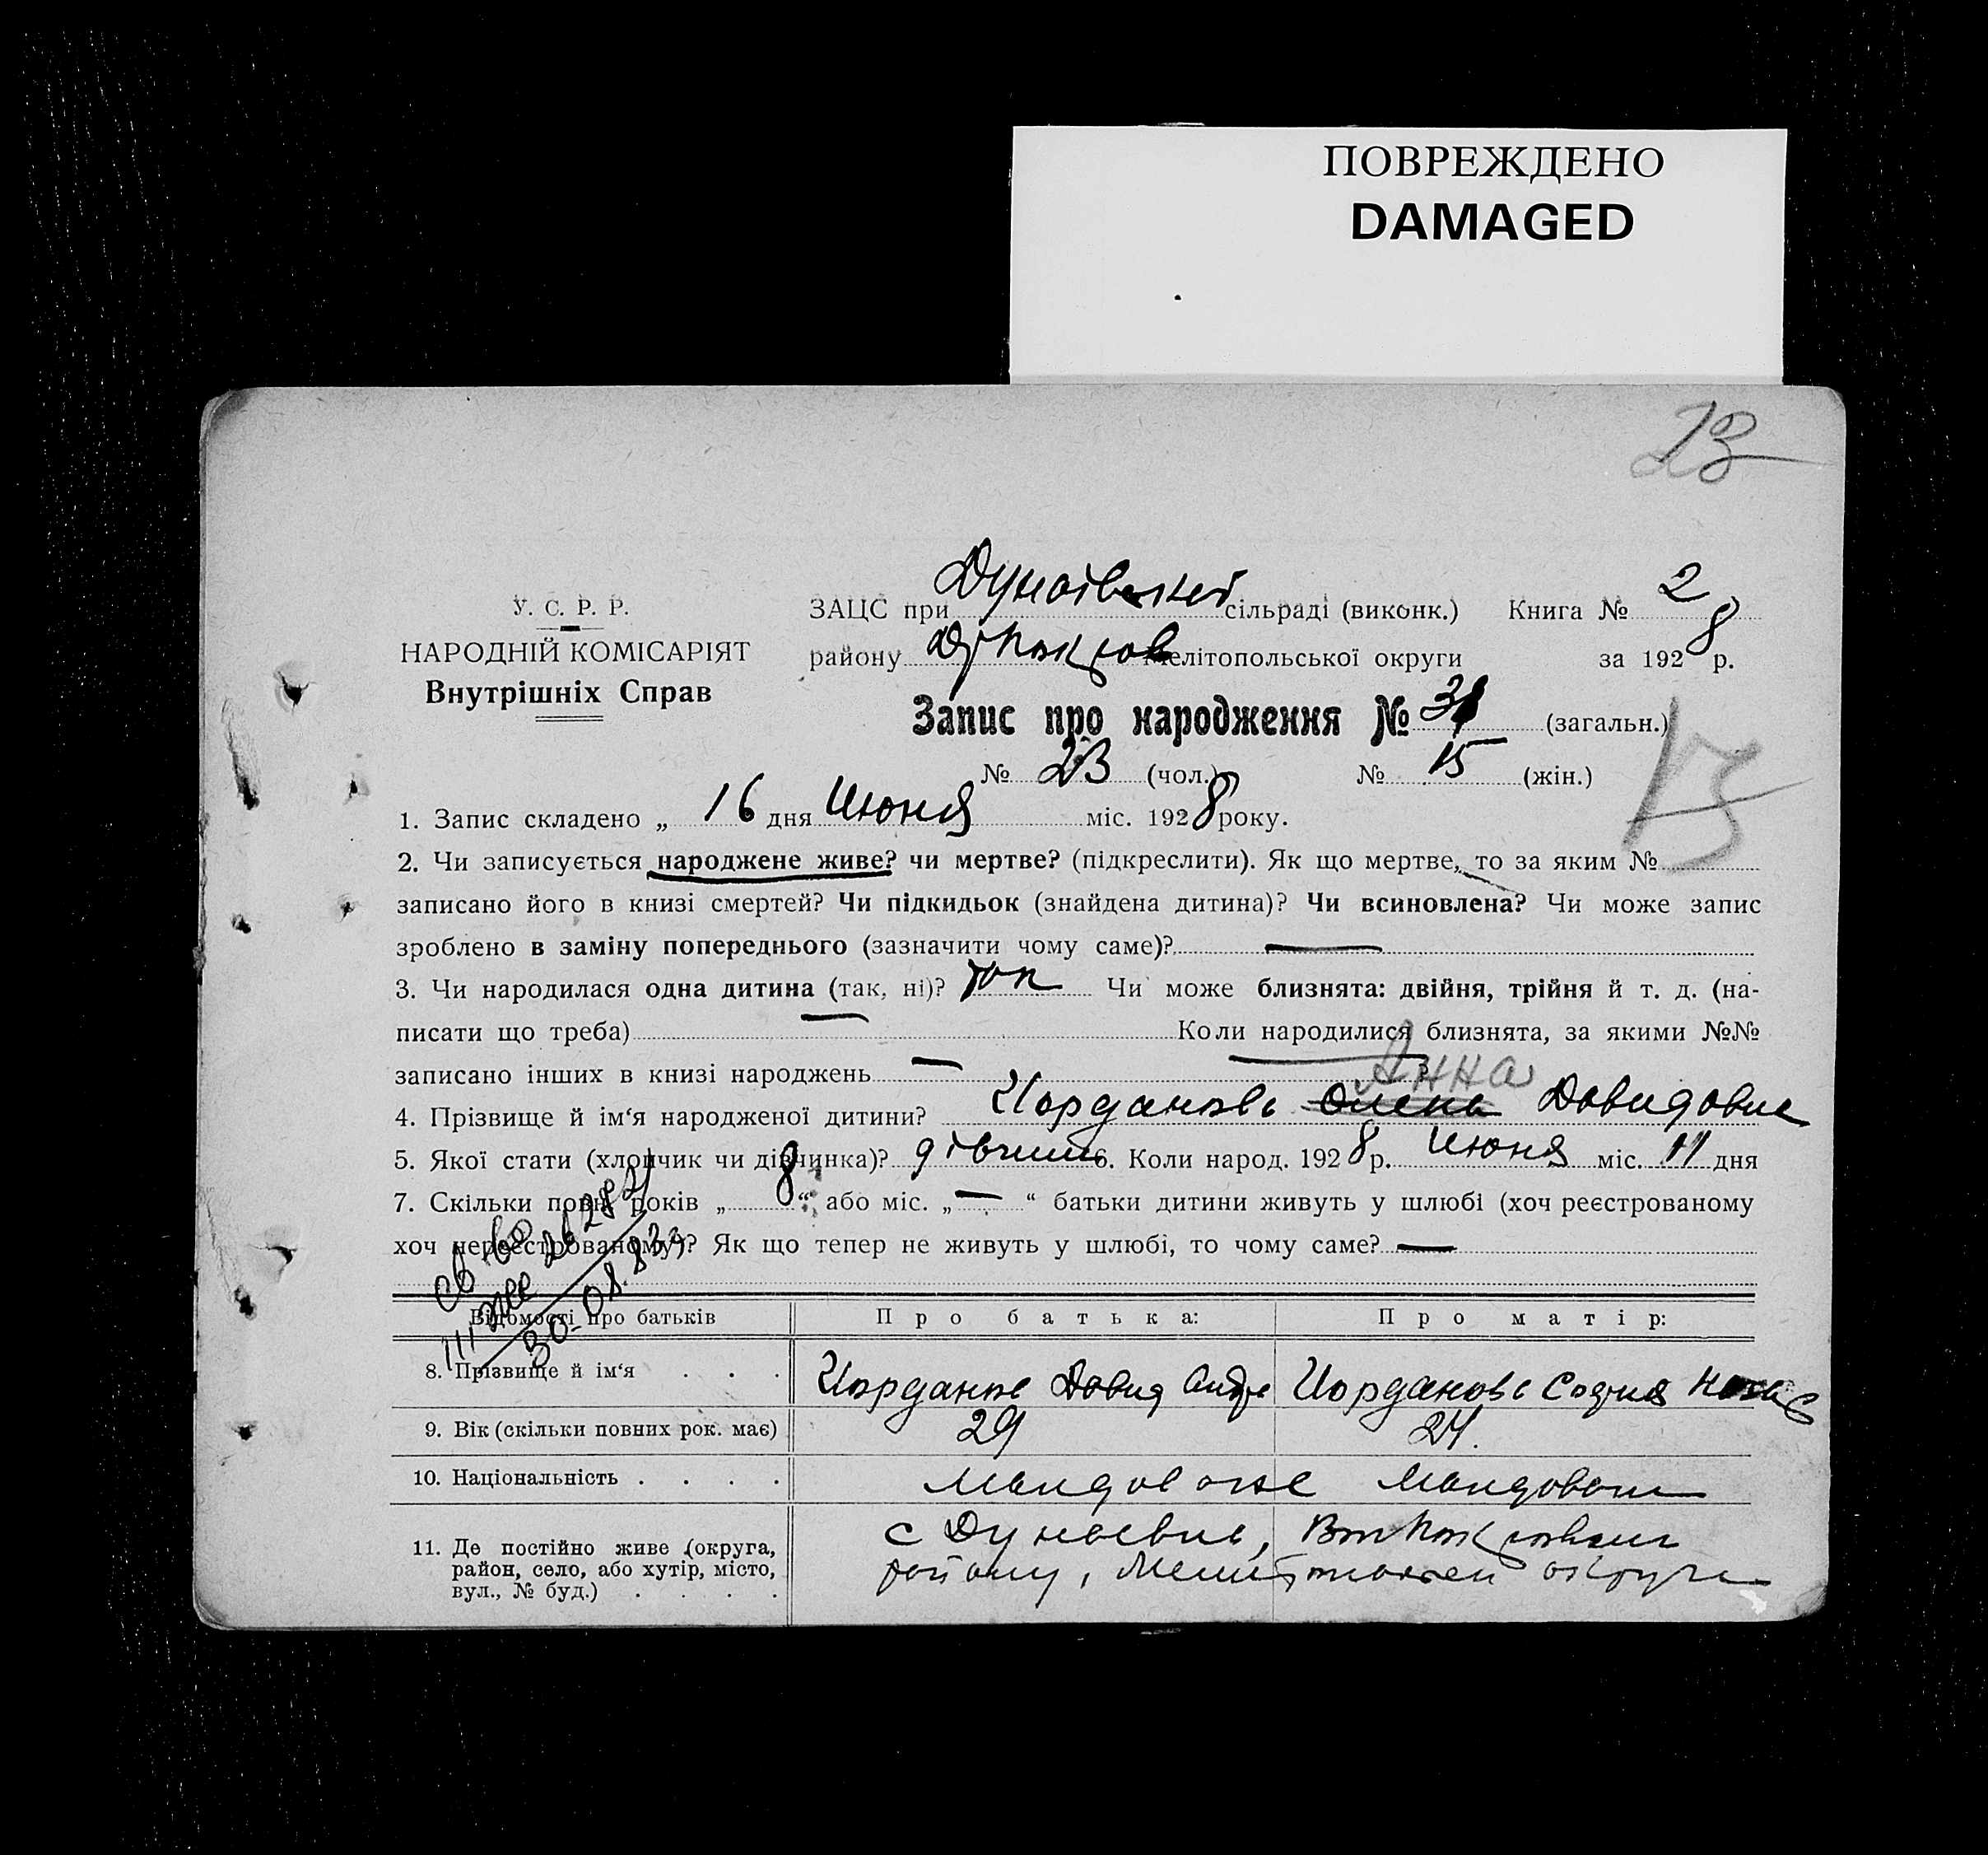 ПОВРЕЖДЕНО
DAMAGED
23
У. С. Р. Р.
НАРОДНІЙ КОМІСАРІЯТ
Внутрішніх Справ
ЗАЦС при Дунаївській сільраді (виконк.) Книга № 2
району Мелітопольської округи за 1928 р.
Запис про народження № 31 (загальн.)
№ 23 (чол.) № 15 (жін.)
1. Запис складено „ 16 дня Июня міс. 1928 року.
2. Чи записується народжене живе? чи мертве? (підкреслити). Як що мертве, то за яким №
записано його в книзі смертей? Чи підкидьок (знайдена дитина)? Чи всиновлена? Чи може запис
зроблено в заміну попереднього (зазначити чому саме)? —
3. Чи народилася одна дитина (так, ні)? так Чи може близнята: двійня, трійня й т. д. (на-
писати що треба) — Коли народилися близнята, за якими №№
записано інших в книзі народжень —
Анна
4. Прізвище й ім‘я народженої дитини? Иорданова Олена Давидовна
5. Якої стати (хлопчик чи дівчинка)? дівчин 6. Коли народ. 1928 р. Июня міс. 11 дня
7. Скільки повн. років „ 8 “ або міс. „ — “ батьки дитини живуть у шлюбі (хоч реєстрованому
хоч нереєстрованому)? Як що тепер не живуть у шлюбі, то чому саме? —
Відомості про батьків Про батька: Про матір:
8. Прізвище й ім‘я . . . Иорданов Давид Иорданова София
9. Вік (скільки повних рок. має) 29 24.
10. Національність . . . .
11. Де постійно живе (округа,
район, село, або хутір, місто,
вул., № буд.) . . . .
с Дунаевка,
району, округи